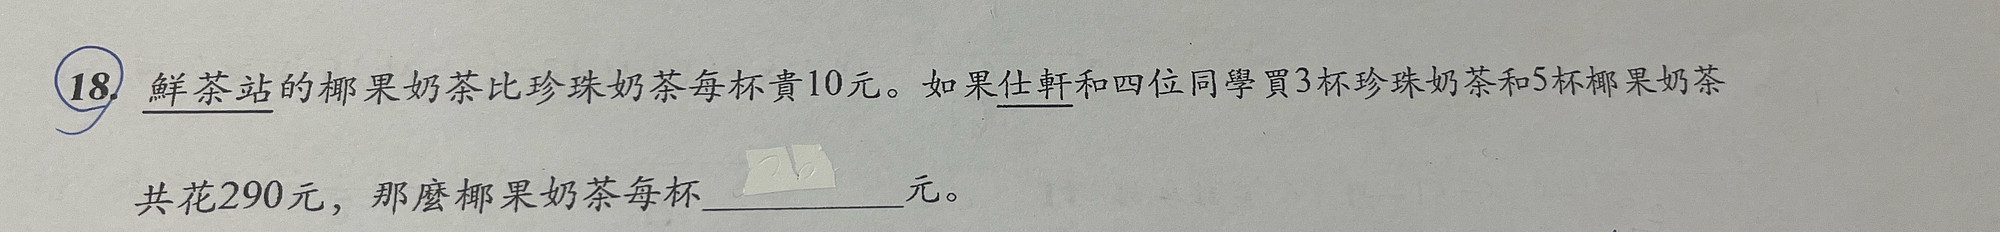 18. 鮮茶站的椰果奶茶比珍珠奶茶每杯貴10元。如果仕軒和四位同學買3杯珍珠奶茶和5杯椰果奶茶
共花290元，那麼椰果奶茶每杯__________元。